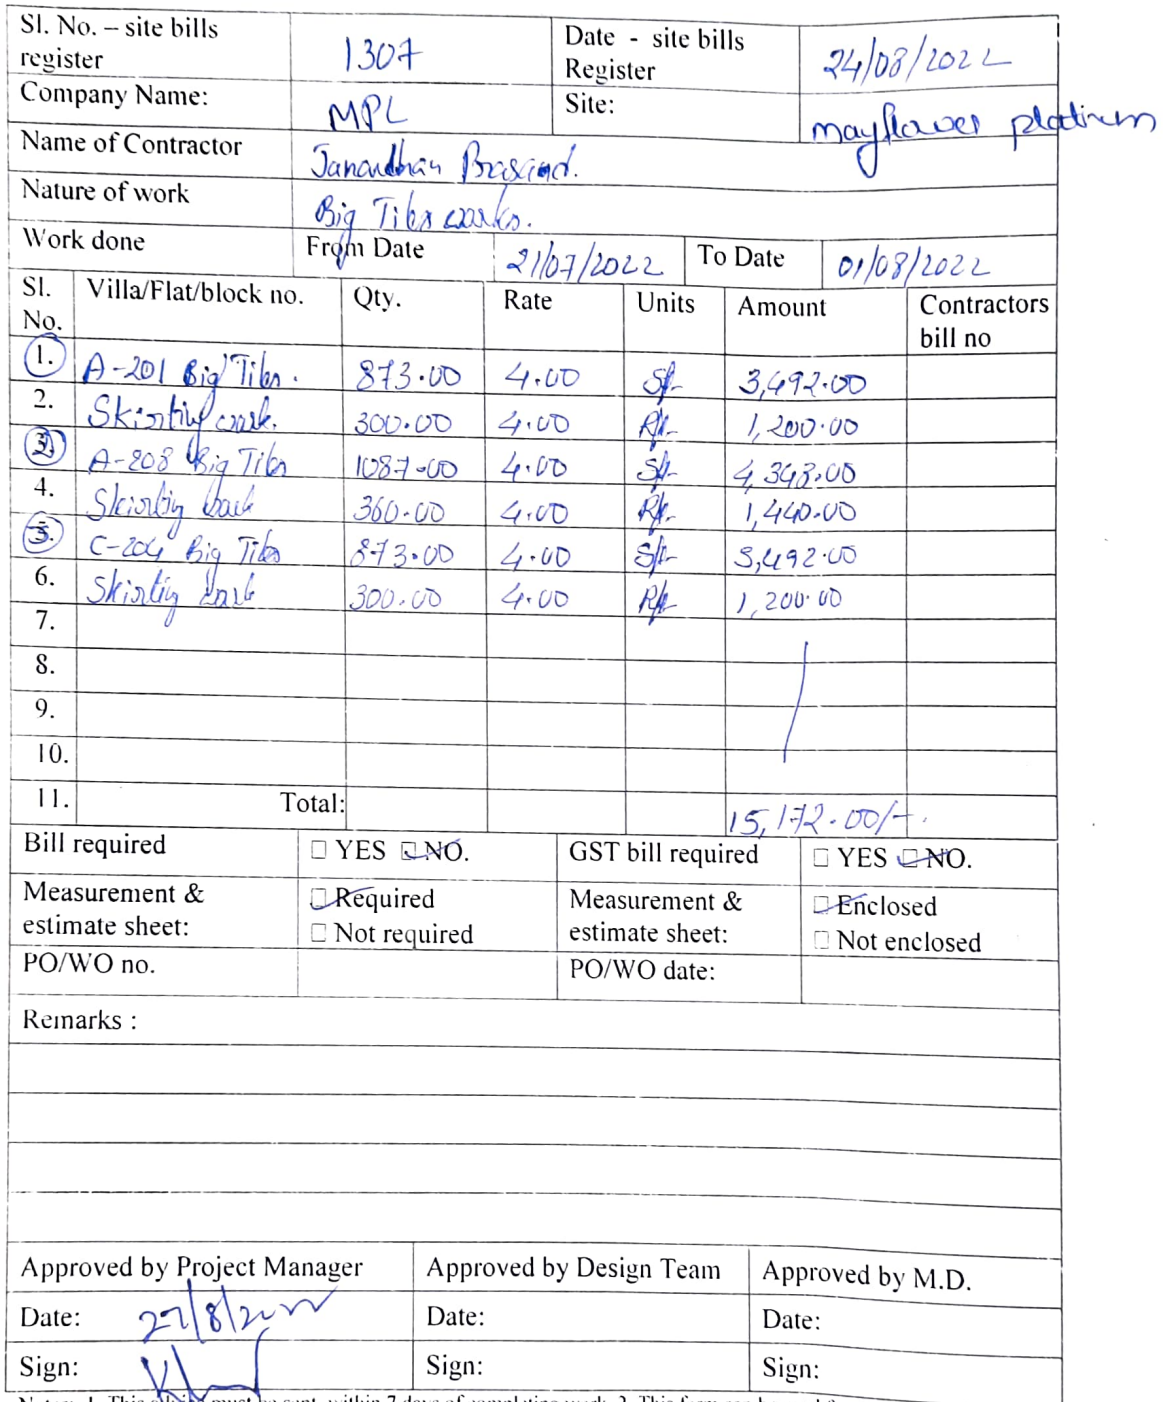 Sl. No. – site bills register 1307 Date - site bills Register 24/08/2022
Company Name: MPL Site: mayflower platinum
Name of Contractor Janardhan Prasad.
Nature of work Big Tiles works.
Work done From Date 21/07/2022 To Date 01/08/2022
Sl. No. Villa/Flat/block no. Qty. Rate Units Amount Contractors bill no
1. A-201 Big Tiles. 873.00 4.00 Sft 3,492.00
2. Skirting work. 300.00 4.00 Rft 1,200.00
3. A-208 Big Tiles 1087.00 4.00 Sft 4,348.00
4. Skirting work 360.00 4.00 Rft 1,440.00
5. C-204 Big Tiles 873.00 4.00 Sft 3,492.00
6. Skirting work 300.00 4.00 Rft 1,200.00
7.
8.
9.
10.
11. Total: 15,172.00/-.
Bill required □ YES □ NO. GST bill required □ YES □ NO.
Measurement & estimate sheet: □ Required □ Not required Measurement & estimate sheet: □ Enclosed □ Not enclosed
PO/WO no. PO/WO date:
Remarks :
Approved by Project Manager Approved by Design Team Approved by M.D.
Date: 27/8/2022 Date: Date:
Sign: Sign: Sign: